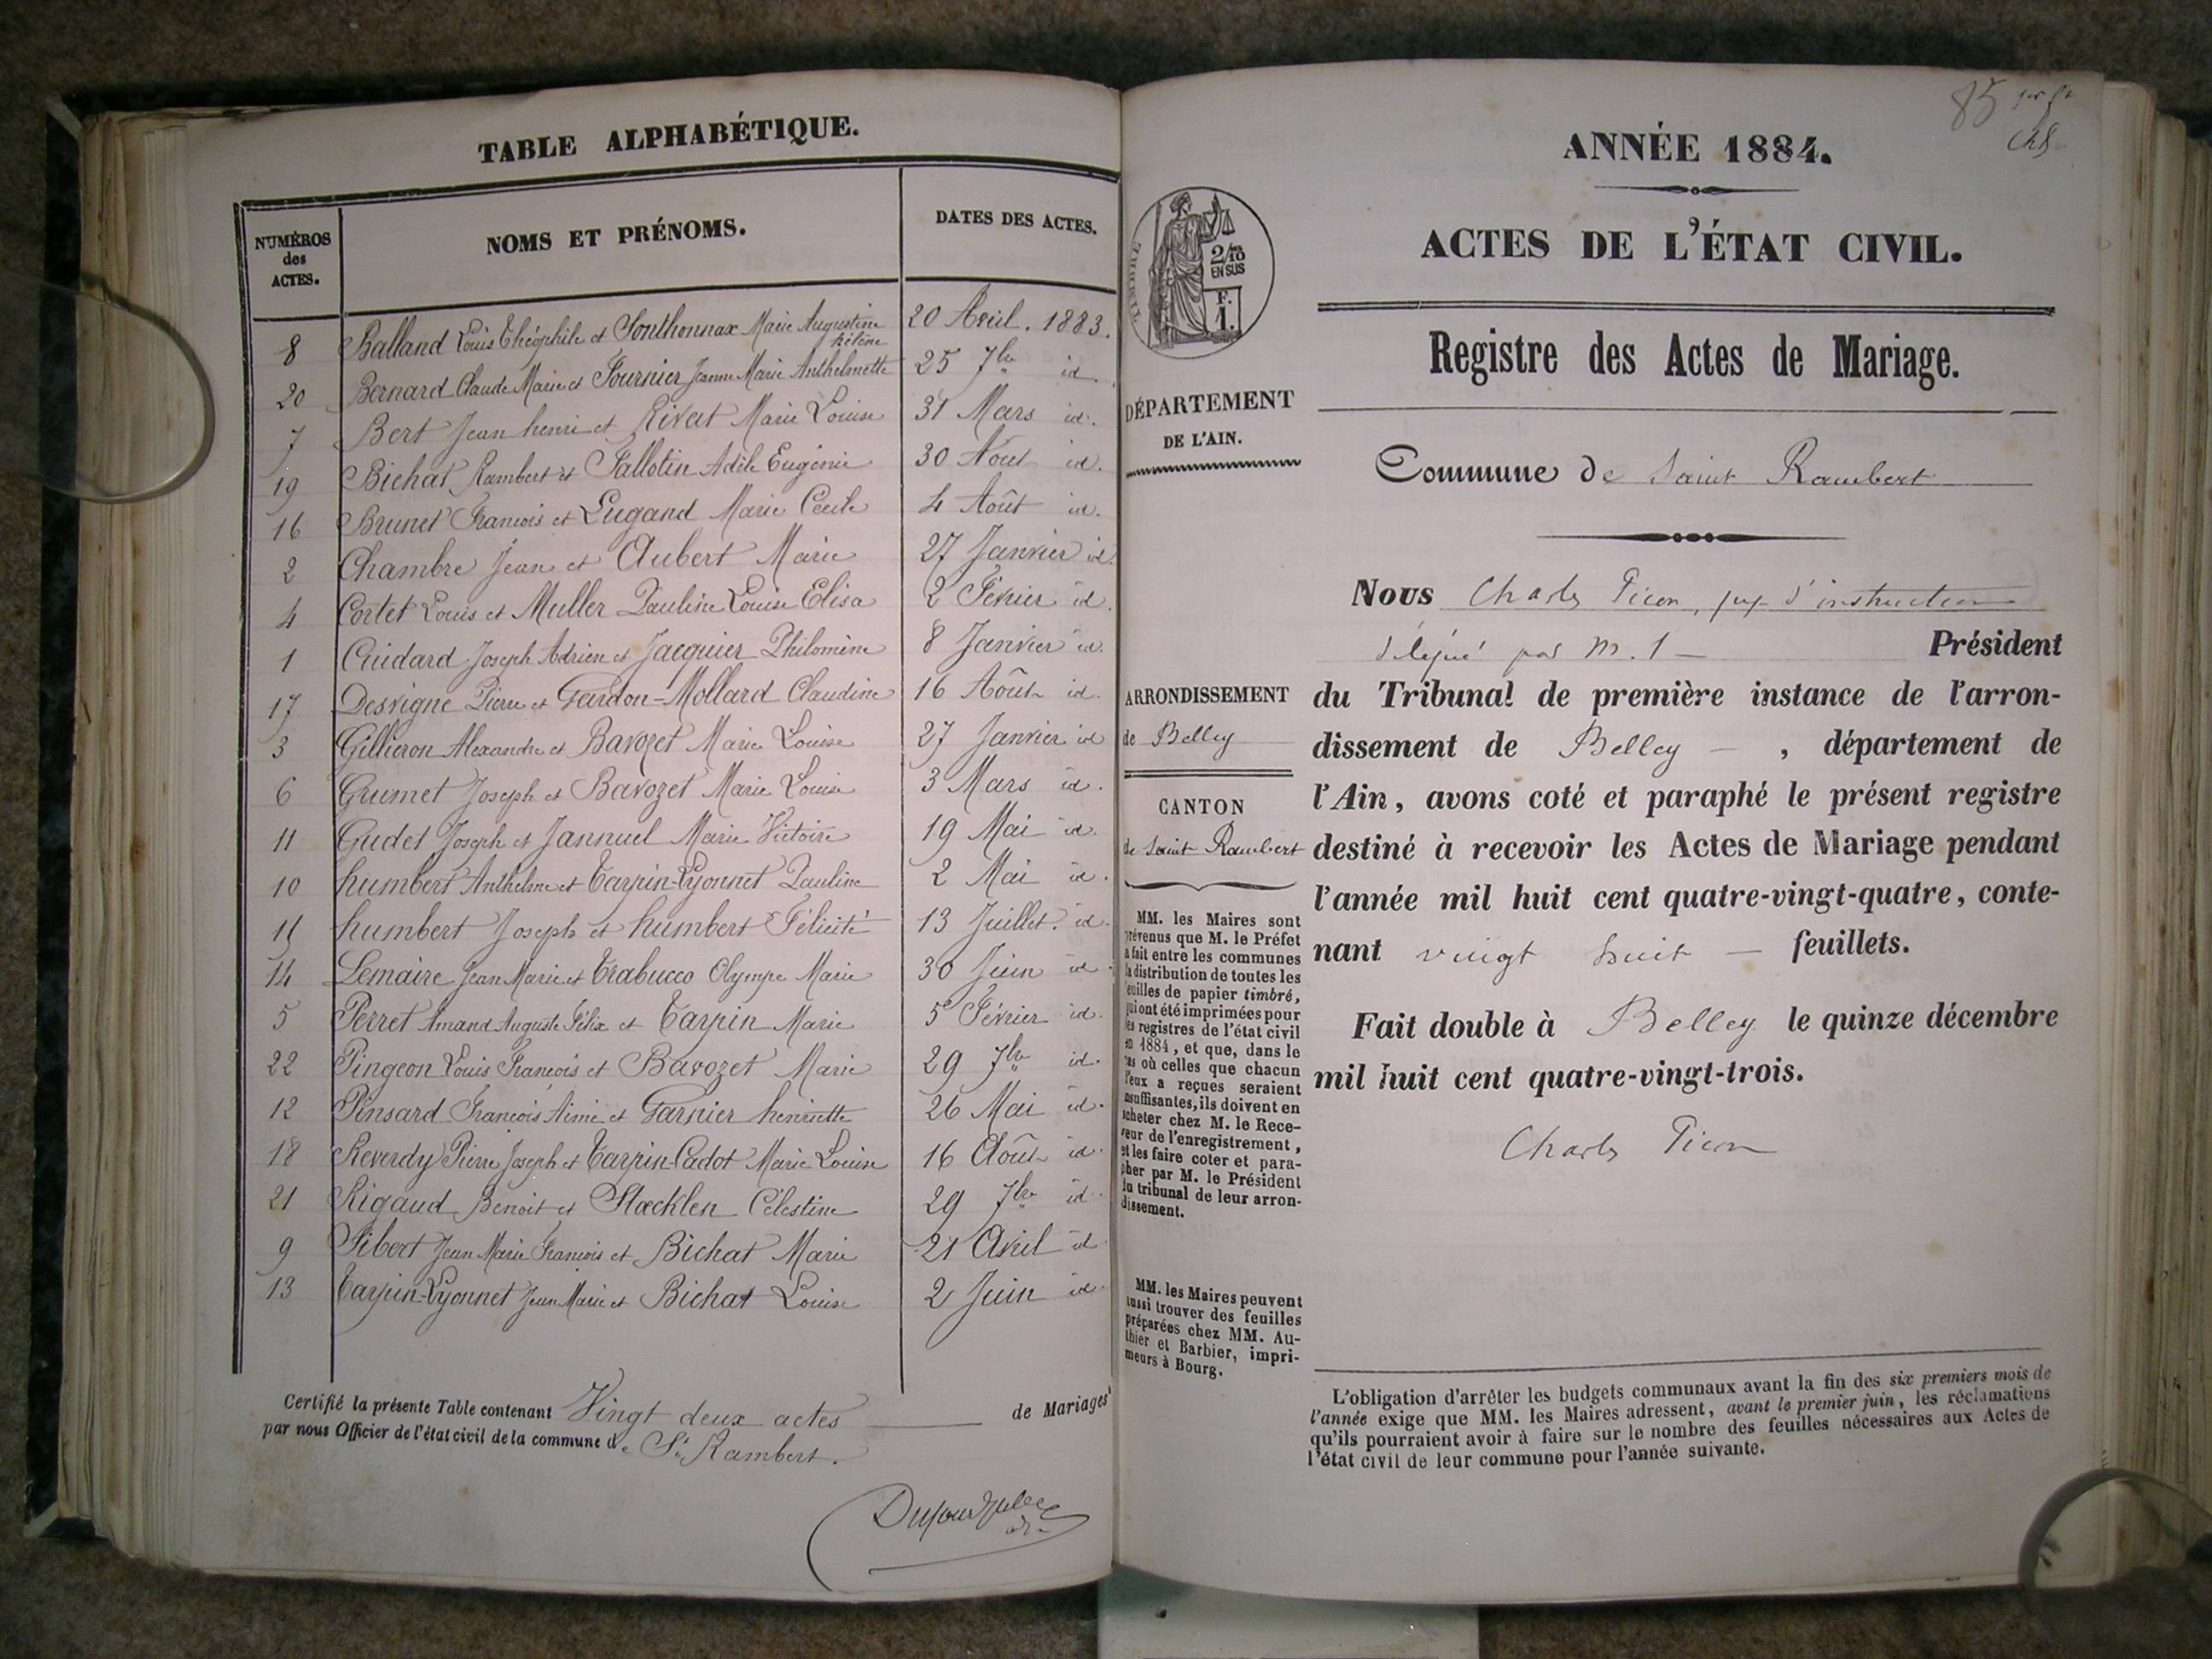 TABLE ALPHABÉTIQUE.
NUMÉROS des ACTES. NOMS ET PRÉNOMS. DATES DES ACTES.
8 Balland Louis Théophile et Sonthonnax Marie Augustine hélène 20 Avril. 1883.
20 Bernard Claude Marie et Fournier Jeanne Marie Anthelmette 25 7bre id.
7 Bert Jean henri et Rivat Marie Louise 31 Mars id.
19 Bichat Rambert et Fallotin Adèle Eugénie 30 Août id.
16 Brunet François et Lugand Marie Cécile 4 Août id.
2 Chambre Jean et Aubert Marie 27 Janvier id.
4 Cortet Louis et Muller Pauline Louise Elisa 2 Février id.
1 Cuidard Joseph Adrien et Jacquier Philomène 8 Janvier id.
17 Desvigne Pierre et Gardon-Mollard Claudine 16 Août id.
3 Gilliéron Alexandre et Bavozet Marie Louise 27 Janvier id
6 Grumet Joseph et Bavozet Marie Louise 3 Mars id.
11 Gudet Joseph et Jannuel Marie Victoire 19 Mai id.
10 humbert Anthelme et Tarpin-Lyonnet Pauline 2 Mai id.
15 humbert Joseph et humbert Félicité 13 Juillet. id.
14 Lemaire Jean Marie et Trabucco Olympe Marie 30 Juin id.
5 Perret Amand Auguste Félix et Tarpin Marie 5 Février id.
22 Pingeon Louis François et Bavozet Marie 29 7bre id.
12 Pinsard François Aimé et Garnier henriette 26 Mai id.
18 Reverdy Pierre Joseph et Tarpin-Cadot Marie Louise 16 Août id.
21 Rigaud Benoit et Stœcklen Célestine 29 7bre id.
9 Sibert Jean Marie François et Bichat Marie 21 Avril id
13 Tarpin-Lyonnet Jean Marie et Bichat Louise 2 Juin id.
Certifié la présente Table contenant Vingt deux actes de Mariages
par nous Officier de l'état civil de la commune de St Rambert.
85
ANNÉE 1884.
ACTES DE L'ÉTAT CIVIL.
Registre des Actes de Mariage.
TIMBRE
2/10
EN SUS
F.
1.
DÉPARTEMENT
DE L'AIN.
Commune de Saint Rambert
Nous Charles Picon, juge d'instruction
délégué par M. l Président
du Tribunal de première instance de l'arron-
dissement de Belley , département de
l'Ain, avons coté et paraphé le présent registre
destiné à recevoir les Actes de Mariage pendant
l'année mil huit cent quatre-vingt-quatre, conte-
nant vingt huit feuillets.
Fait double à Belley le quinze décembre
mil huit cent quatre-vingt-trois.
Charles Picon
ARRONDISSEMENT
de Belley
CANTON
de Saint Rambert
MM. les Maires sont
prévenus que M. le Préfet
a fait entre les communes
la distribution de toutes les
feuilles de papier timbré,
qui ont été imprimées pour
les registres de l'état civil
en 1884, et que, dans le
cas où celles que chacun
d'eux a reçues seraient
insuffisantes, ils doivent en
acheter chez M. le Rece-
veur de l'enregistrement,
et les faire coter et para-
pher par M. le Président
du tribunal de leur arron-
dissement.
MM. les Maires peuvent
aussi trouver des feuilles
préparées chez MM. Au-
thier et Barbier, impri-
meurs à Bourg.
L'obligation d'arrêter les budgets communaux avant la fin des six premiers mois de
l'année exige que MM. les Maires adressent, avant le premier juin, les réclamations
qu'ils pourraient avoir à faire sur le nombre des feuilles nécessaires aux Actes de
l'état civil de leur commune pour l'année suivante.